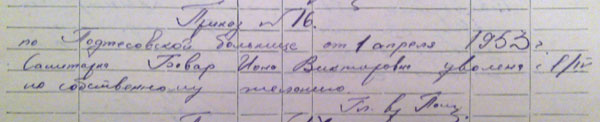 Приказ № 16.
по Подтесовской больнице от 1 апреля 1953 г.
Санитарка Бевар Иона Викторовна уволена с 1/IV
по собственному желанию
Гл. вр